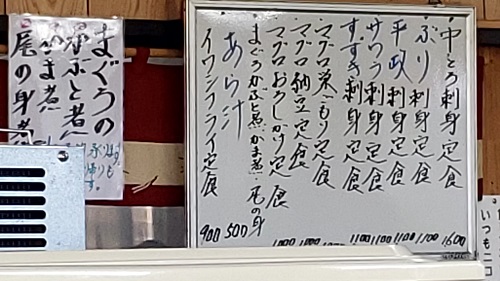 中とろ刺身定食 1600
ぶり刺身定食 1100
平政刺身定食 1100
サワラ刺身定食 1100
すずき刺身定食 1100
マグロ盛もり定食
マグロ納豆定食
マグロおろしかけ定食
まぐろかぶと煮かま煮尾の身
あら汁 500
イワシフライ定食 900
まぐろの
かぶと煮
かま煮
尾の身煮
いつもニコ